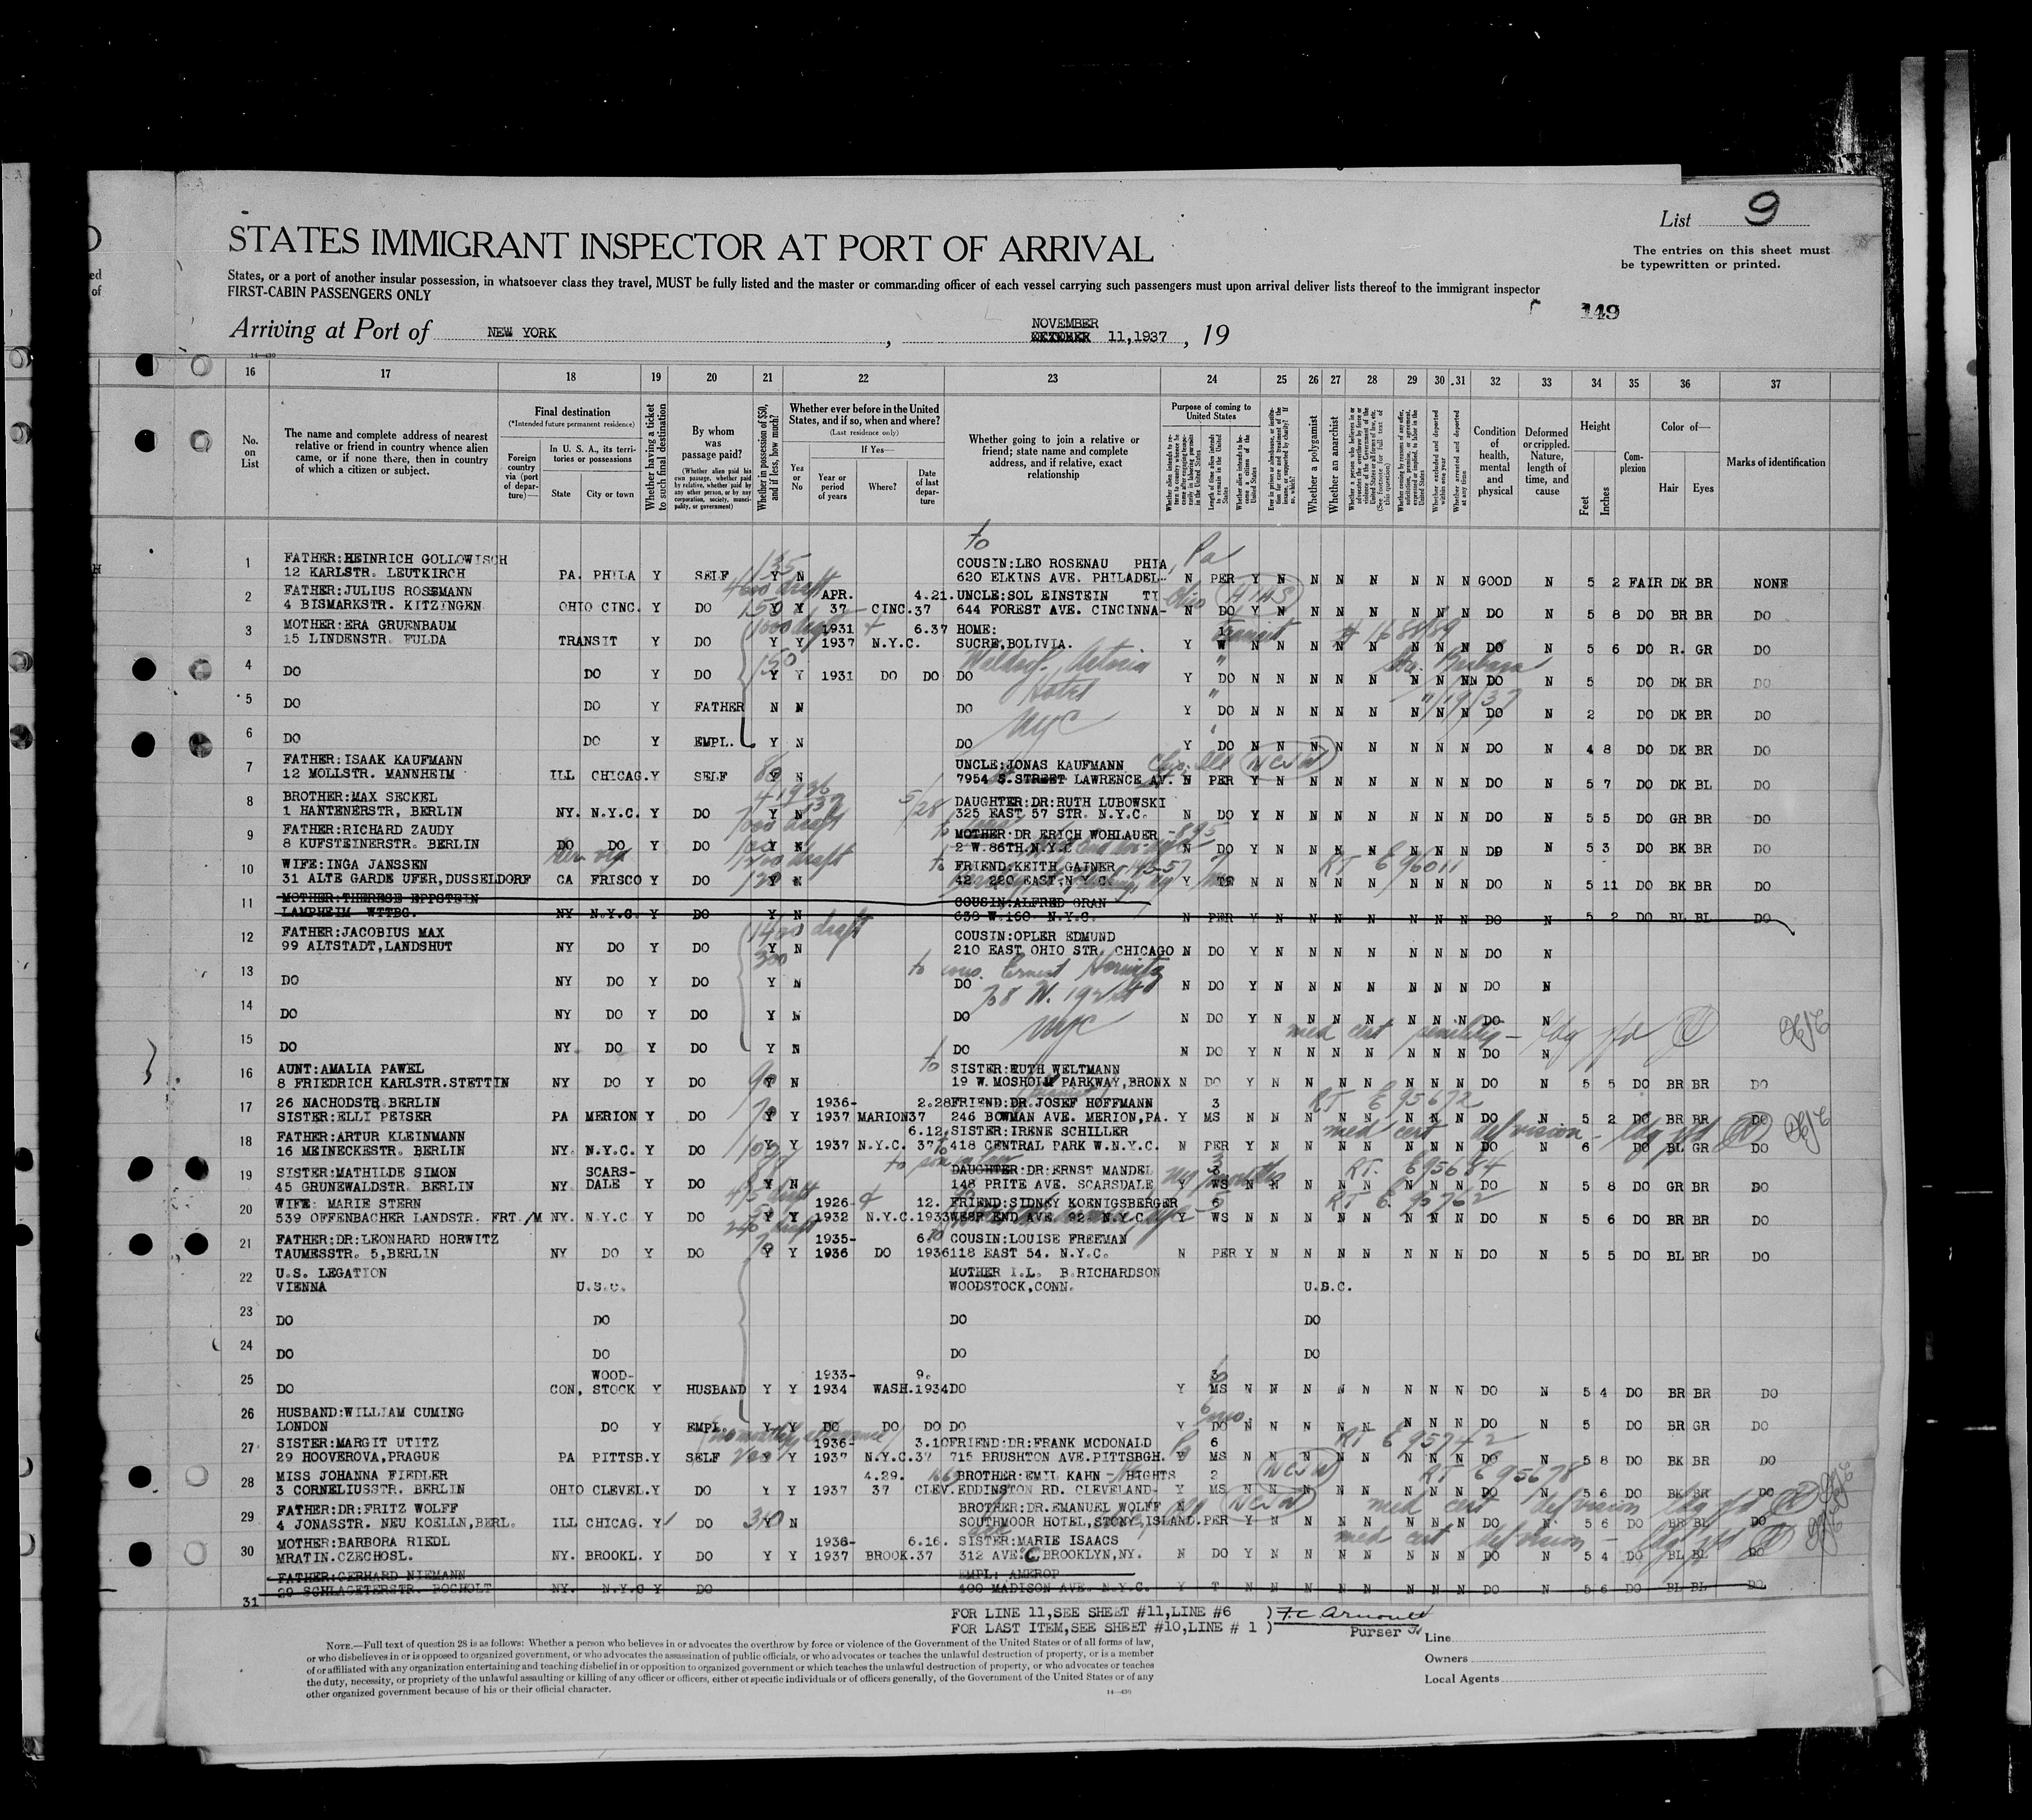 List 9
STATES IMMIGRANT INSPECTOR AT PORT OF ARRIVAL
The entries on this sheet must
be typewritten or printed.
States, or a port of another insular possession, in whatsoever class they travel, MUST be fully listed and the master or commanding officer of each vessel carrying such passengers must upon arrival deliver lists thereof to the immigrant inspector
FIRST-CABIN PASSENGERS ONLY
149
Arriving at Port of NEW YORK, NOVEMBER 11,1937, 19
14—430
16 17 18 19 20 21 22 23 24 25 26 27 28 29 30 31 32 33 34 35 36 37
No. on List
The name and complete address of nearest relative or friend in country whence alien came, or if none there, then in country of which a citizen or subject.
Final destination
(*Intended future permanent residence)
Foreign country via (port of departure)—
In U. S. A., its territories or possessions
State City or town
Whether having a ticket to such final destination
By whom was passage paid?
(Whether alien paid his own passage, whether paid by relative, whether paid by any other person, or by any corporation, society, municipality, or government)
Whether in possession of $50, and if less, how much?
Whether ever before in the United States, and if so, when and where?
(Last residence only)
Yes or No
If Yes—
Year or period of years
Where?
Date of last departure
Whether going to join a relative or friend; state name and complete address, and if relative, exact relationship
Purpose of coming to United States
Length of time alien intends to remain in the United States
Whether alien intends to become a citizen of the United States
Whether a polygamist
Whether an anarchist
Whether excluded and deported within one year
Whether arrested and deported at any time
Condition of health, mental and physical
Deformed or crippled. Nature, length of time, and cause
Height
Feet Inches
Complexion
Color of—
Hair Eyes
Marks of identification
1 FATHER:HEINRICH GOLLOWISCH COUSIN:LEO ROSENAU PHIA, Pa
12 KARLSTR. LEUTKIRCH PA. PHILA Y SELF Y N 620 ELKINS AVE. PHILADEL- N PER Y N N N N N N N GOOD N 5 2 FAIR DK BR NONE
2 FATHER:JULIUS ROSSMANN APR. 4.21. UNCLE:SOL EINSTEIN TI Ohio HIAS
4 BISMARKSTR. KITZINGEN OHIO CINC. Y DO Y Y 37 CINC. 37 644 FOREST AVE. CINCINNA- N DO Y N N N N N N N DO N 5 8 DO BR BR DO
3 MOTHER:ERA GRUENBAUM 1931 6.37 HOME: transit
15 LINDENSTR. FULDA TRANSIT Y DO Y Y 1937 N.Y.C. SUCRE,BOLIVIA. Y N N N N N N N N DO N 5 6 DO R. GR DO
4 DO DO Y DO 150 Y Y 1931 DO DO DO Waldorf Astoria Y DO N N N N N N N N DO N 5 DO DK BR DO
Hotel
5 DO DO Y FATHER N N DO Y DO N N N N N N N N DO N 2 DO DK BR DO
NYC
6 DO DO Y EMPL. Y N DO Y DO N N N N N N N N DO N 4 8 DO DK BR DO
7 FATHER:ISAAK KAUFMANN UNCLE:JONAS KAUFMANN NCJW
12 MOLLSTR. MANNHEIM ILL CHICAG. Y SELF Y N 7954 S.STREET LAWRENCE AV. N PER Y N N N N N N N DO N 5 7 DO DK BL DO
8 BROTHER:MAX SECKEL 5/28 DAUGHTER:DR:RUTH LUBOWSKI
1 HANTENERSTR, BERLIN NY. N.Y.C. Y DO Y N 325 EAST 57 STR. N.Y.C. N DO Y N N N N N N N DO N 5 5 DO GR BR DO
9 FATHER:RICHARD ZAUDY to MOTHER:DR ERICH WOHLAUER
8 KUFSTEINERSTR. BERLIN DO DO Y DO Y N 2 W.86TH.N.Y.C N DO Y N N N N N N N DO N 5 3 DO BK BR DO
10 WIFE:INGA JANSSEN to FRIEND:KEITH GAINER RT E 96011
31 ALTE GARDE UFER,DUSSELDORF CA FRISCO Y DO 120 Y N 42 220 EAST,N.Y.C. Y N N N N N N N N DO N 5 11 DO BK BR DO
11 MOTHER:THERESE EPPSTEIN COUSIN:ALFRED GRAN
LAMPHEIM WTTBG. NY N.Y.C. Y DO Y N 638 W.160 N.Y.C. N PER Y N N N N N N N DO N 5 2 DO BL BL DO
12 FATHER:JACOBIUS MAX 1400 draft COUSIN:OPLER EDMUND
99 ALTSTADT,LANDSHUT NY DO Y DO Y N 210 EAST OHIO STR. CHICAGO N DO Y N N N N N N N DO N
300
13 DO NY DO Y DO Y N to cous. Ernest Horwitz DO N DO Y N N N N N N N DO N
14 DO NY DO Y DO Y N DO N DO Y N N N N N N N DO N
NYC
med cert senility
15 DO NY. DO Y DO Y N DO N DO Y N N N N N N N DO N
16 AUNT:AMALIA PAWEL to SISTER:RUTH WELTMANN
8 FRIEDRICH KARLSTR.STETTIN NY DO Y DO 90 Y N 19 W.MOSHOLM PARKWAY,BRONX N DO Y N N N N N N N DO N 5 5 DO BR BR DO
17 26 NACHODSTR BERLIN 1936- 2.28 FRIEND:DR.JOSEF HOFFMANN 3 RT E 95672
SISTER:ELLI PEISER PA MERION Y DO Y Y 1937 MARION 37 246 BOWMAN AVE. MERION,PA. Y MS N N N N N N N N DO N 5 2 DO BR BR DO
18 FATHER:ARTUR KLEINMANN 6.12. SISTER:IRENE SCHILLER med cert def vision
16 MEINECKESTR. BERLIN NY. N.Y.C. Y DO Y Y 1937 N.Y.C. 37 418 CENTRAL PARK W.N.Y.C. N PER Y N N N N N N N DO N 6 DO BL GR DO
19 SISTER:MATHILDE SIMON SCARS- to son in law DAUGHTER:DR:ERNST MANDEL 3 months RT. E 95684
45 GRUNEWALDSTR. BERLIN NY DALE Y DO Y N 148 PRITE AVE. SCARSDALE, Y N N N N N N N N DO N 5 8 DO GR BR DO
20 WIFE MARIE STERN 1926- 12. FRIEND:SIDNEY KOENIGSBERGER 6 RT E 95762
539 OFFENBACHER LANDSTR. FRT./M NY. N.Y.C Y DO Y Y 1932 N.Y.C. 1933 WEST END AVE. 92. N.Y.C. Y WS N N N N N N N N DO N 5 6 DO BR BR DO
21 FATHER:DR:LEONHARD HORWITZ 1935- COUSIN:LOUISE FREEMAN
TAUMESSTR. 5,BERLIN NY DO Y DO Y Y 1936 DO 1936 118 EAST 54. N.Y.C. N PER Y N N N N N N N DO N 5 5 DO BL BR DO
22 U.S. LEGATION MOTHER I.L. B.RICHARDSON
VIENNA U.S.C. WOODSTOCK,CONN. U.S.C.
23 DO DO DO DO
24 DO DO DO DO
25 WOOD- 1933- 9.
DO CON, STOCK Y HUSBAND Y Y 1934 WASH. 1934 DO Y MS N N N N N N N N DO N 5 4 DO BR BR DO
26 HUSBAND:WILLIAM CUMING 6 mo.
LONDON DO Y EMPL. Y Y DO DO DO DO Y DO N N N N N N N N DO N 5 DO BR GR DO
27 SISTER:MARGIT UTITZ 1936- 3.10 FRIEND:DR:FRANK MCDONALD 6 RT E 95742
29 HOOVEROVA,PRAGUE PA PITTSB. Y SELF Y Y 1937 N.Y.C. 37 715 BRUSHTON AVE.PITTSBGH. Y MS N N N N N N N N DO N 5 8 DO BK BR DO
28 MISS JOHANNA FIEDLER 4.29. BROTHER:EMIL KAHN - HEIGHTS 2 NCJW RT E 95678
3 CORNELIUSSTR. BERLIN OHIO CLEVEL. Y DO Y Y 1937 37 CLEV. EDDINGTON RD. CLEVELAND- Y MS N N N N N N N N DO N 5 6 DO BK BR DO
29 FATHER:DR:FRITZ WOLFF BROTHER:DR.EMANUEL WOLFF N NCJW med cert def vision
4 JONASSTR. NEU KOELLN,BERL. ILL CHICAG. Y DO Y N SOUTHMOOR HOTEL,STONY ISLAND. PER Y N N N N N N N DO N 5 6 DO BR BL DO
30 MOTHER:BARBORA RIEDL 1936- 6.16. SISTER:MARIE ISAACS med cert def vision
MRATIN.CZECHOSL. NY. BROOKL. Y DO Y Y 1937 BROOK. 37 312 AVE."C,BROOKLYN,NY. N DO Y N N N N N N N DO N 5 4 DO BL BL DO
FATHER:GERHARD NIEMANN EMPL: AMEROP
31 29 SCHLAGETERSTR. BOCHOLT NY. N.Y.C Y DO 400 MADISON AVE. N.Y.C. Y T N N N N N N N N DO N 5 6 DO BL BL DO
FOR LINE 11,SEE SHEET #11,LINE #6 ) F.C. Arnould
FOR LAST ITEM,SEE SHEET #10,LINE # 1 ) Purser
Line
Owners
Local Agents
NOTE.—Full text of question 28 is as follows: Whether a person who believes in or advocates the overthrow by force or violence of the Government of the United States or of all forms of law,
or who disbelieves in or is opposed to organized government, or who advocates the assassination of public officials, or who advocates or teaches the unlawful destruction of property, or is a member
of or affiliated with any organization entertaining and teaching disbelief in or opposition to organized government or which teaches the unlawful destruction of property, or who advocates or teaches
the duty, necessity, or propriety of the unlawful assaulting or killing of any officer or officers, either of specific individuals or of officers generally, of the Government of the United States or of any
other organized government because of his or their official character.
14—430